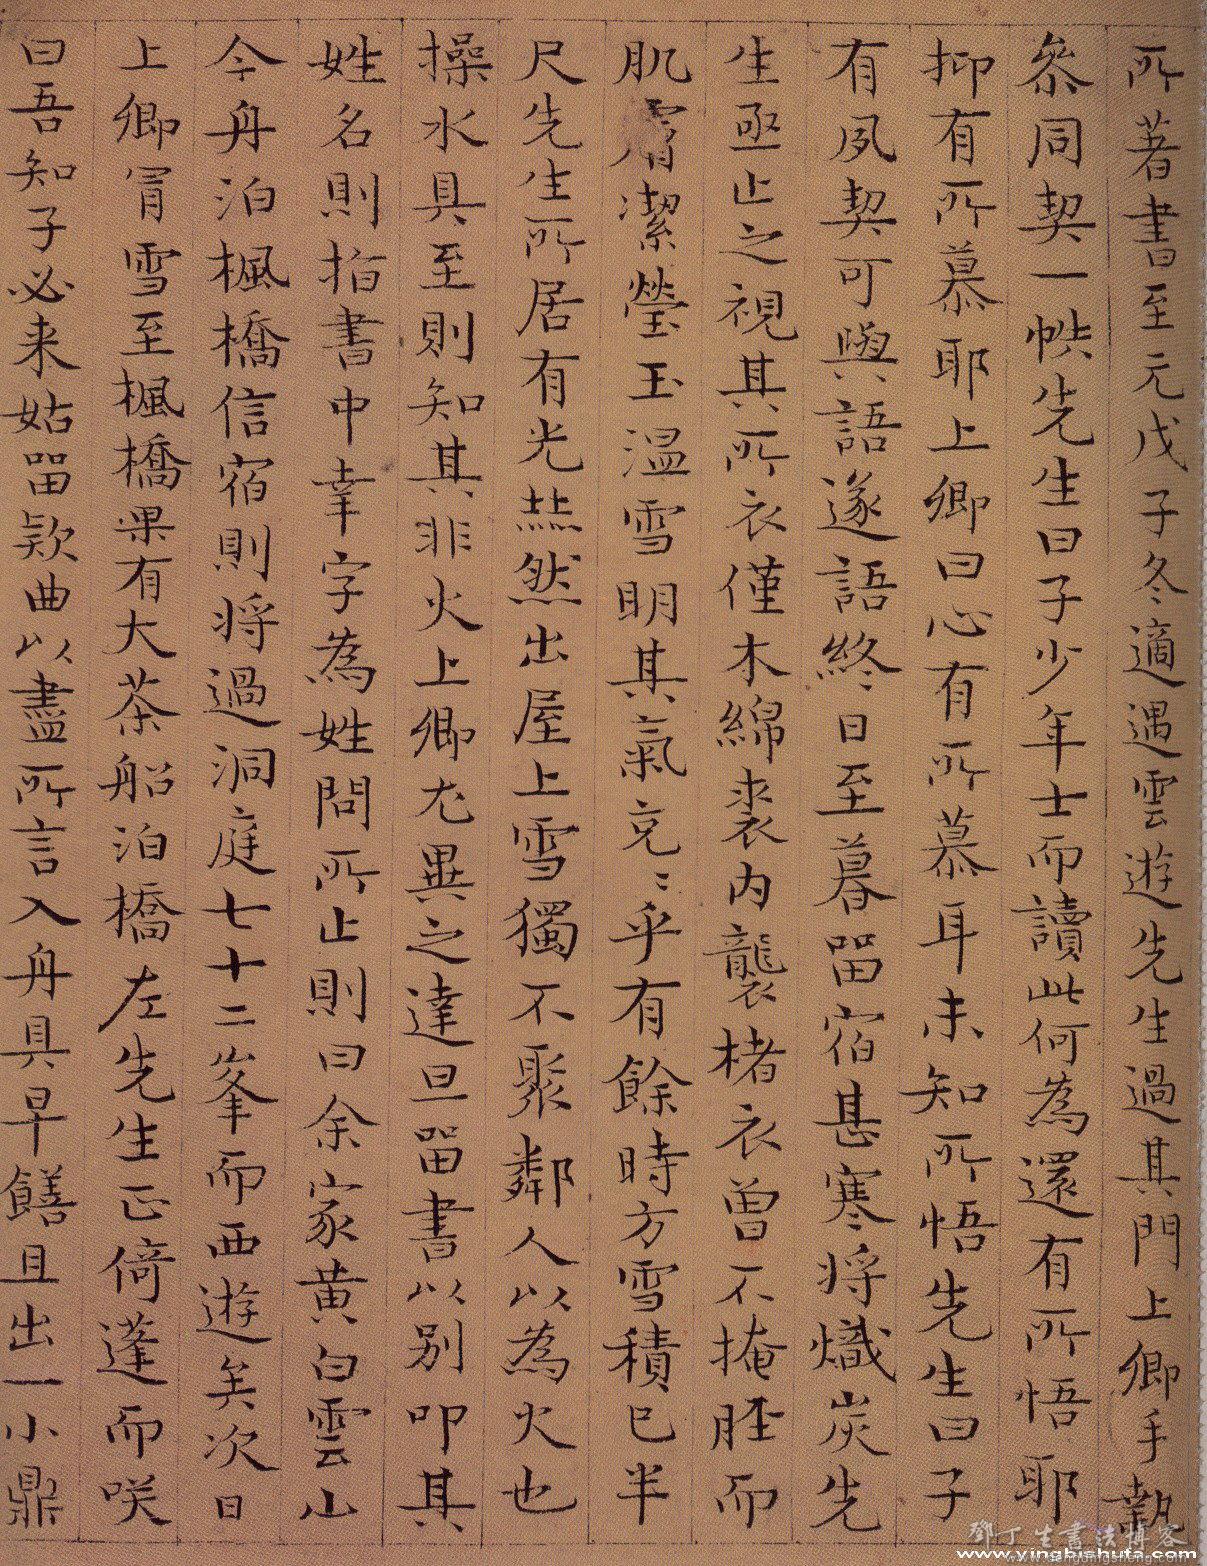 所著書至元戊子冬適遇雲遊先生過其門上卿手執
叅同契一帙先生曰子少年士而讀此何為還有所悟耶
抑有所慕耶上卿曰心有所慕耳未知所悟先生曰子
有夙契可與語遂語終日至暮留宿甚寒將熾炭先
生亟止之視其所衣僅木綿裘内襲楮衣曽不掩胫而
肌膚潔瑩玉温雪明其氣充〻乎有餘時方雪積已半
尺先生所居有光𤇆然出屋上雪獨不聚鄰人以為火也
操水具至則知其非火上卿尤異之達旦留書以别叩其
姓名則指書中幸字為姓問所止則曰余家黄白雲山
今舟泊楓橋信宿則将過洞庭七十二峯而西遊矣次日
上卿冐雪至楓橋果有大茶船泊橋左先生正倚蓬而咲
曰吾知子必来姑留欵曲以盡所言入舟具早饍且出一小鼎
鄧丁生書法博客
www.yingbishufa.com